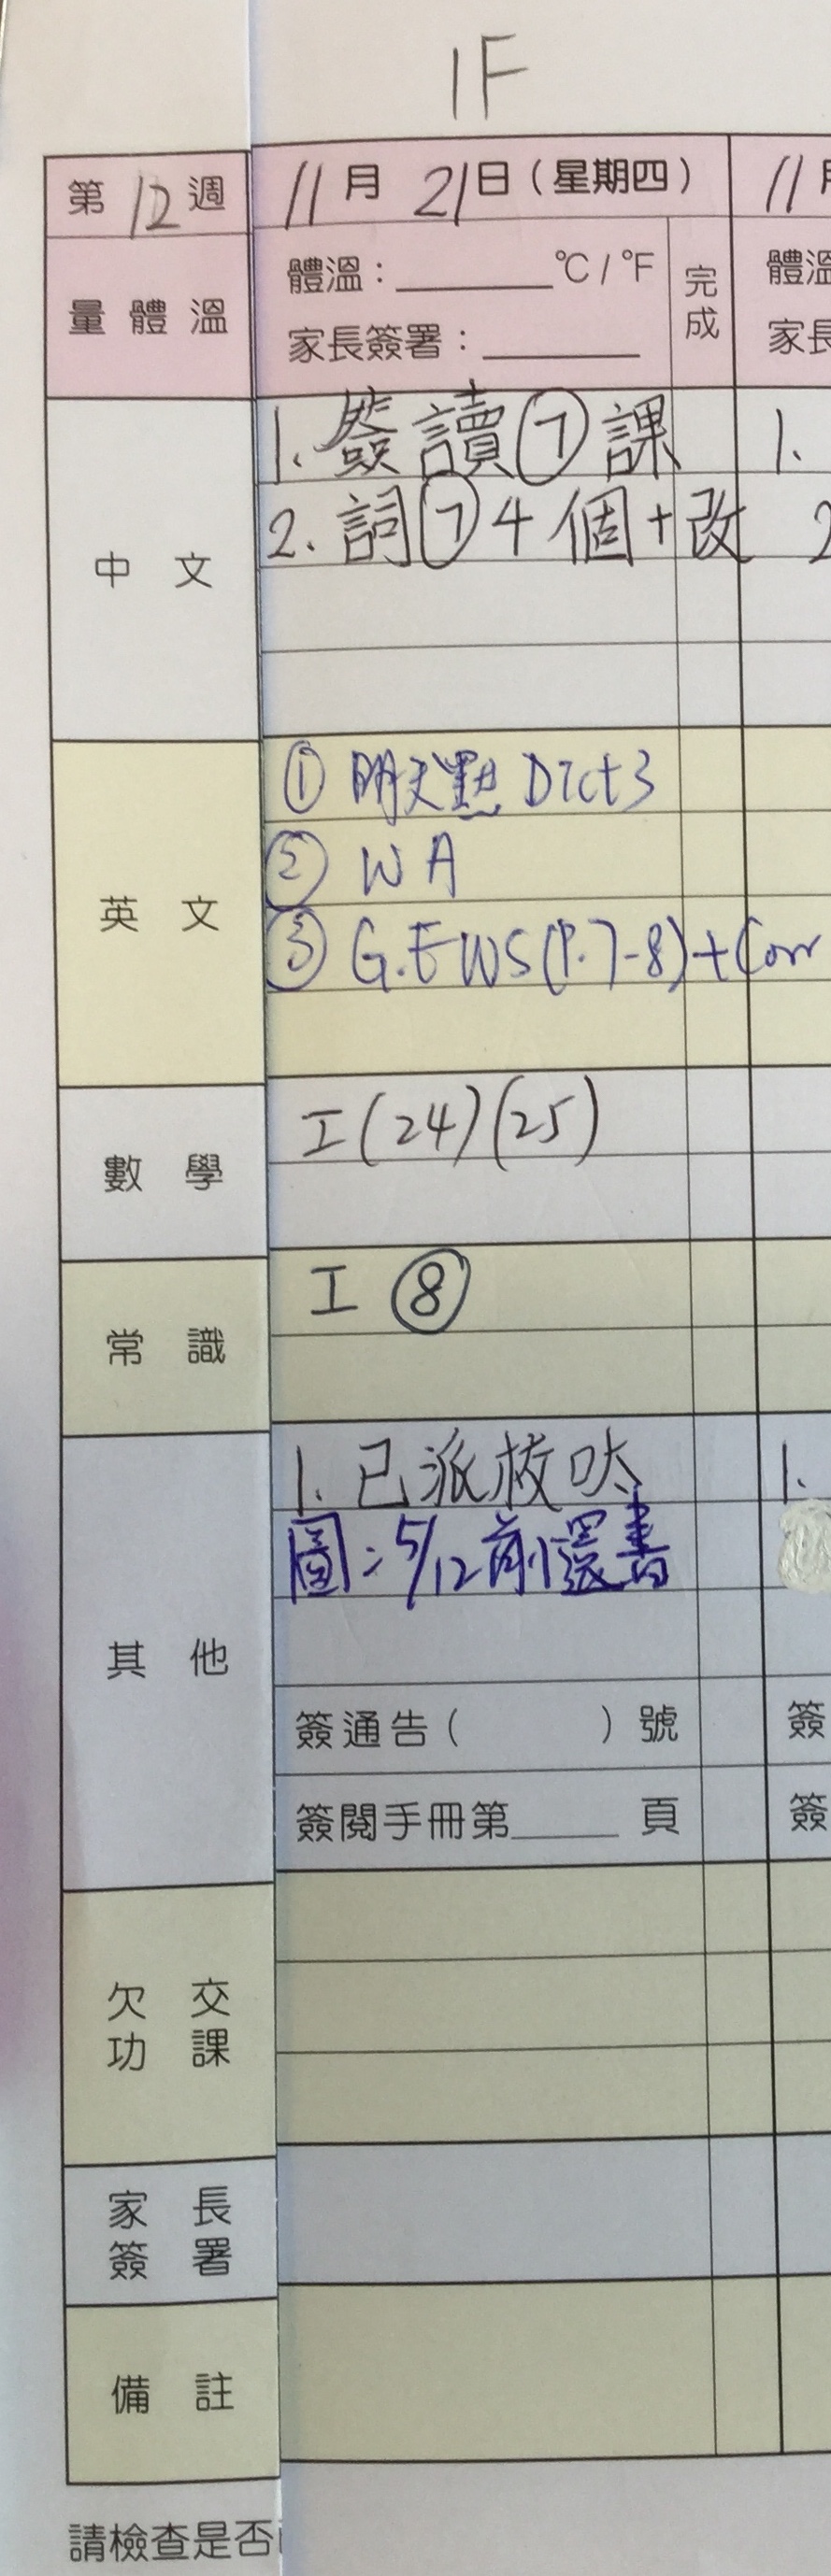 1F
第12週
11月21日（星期四）
11月
量體溫
體溫：______°C / °F
完成
體溫
家長簽署：______
家長
中文
1. 簽讀⑦課
1.
2. 詞⑦4個+改
2
英文
① 明天默Dict3
② WA
③ G.E WS(P.7-8)+Corr
數學
I(24)(25)
常識
I ⑧
其他
1. 已派校呔
1.
圖：5/12前還書
簽通告（　　）號
簽
簽閱手冊第____頁
簽
欠交功課
家長簽署
備註
請檢查是否